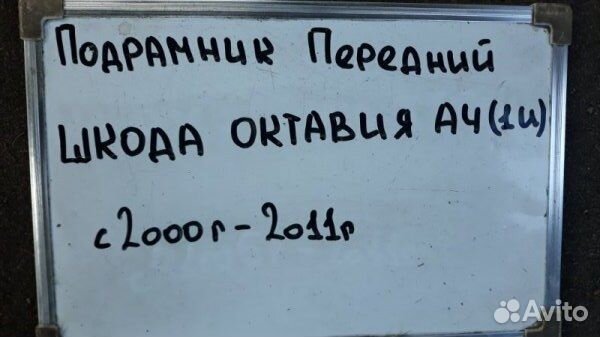 Подрамник Передний
ШКОДА ОКТАВИЯ А4(1и)
с 2000г-2011г
Avito